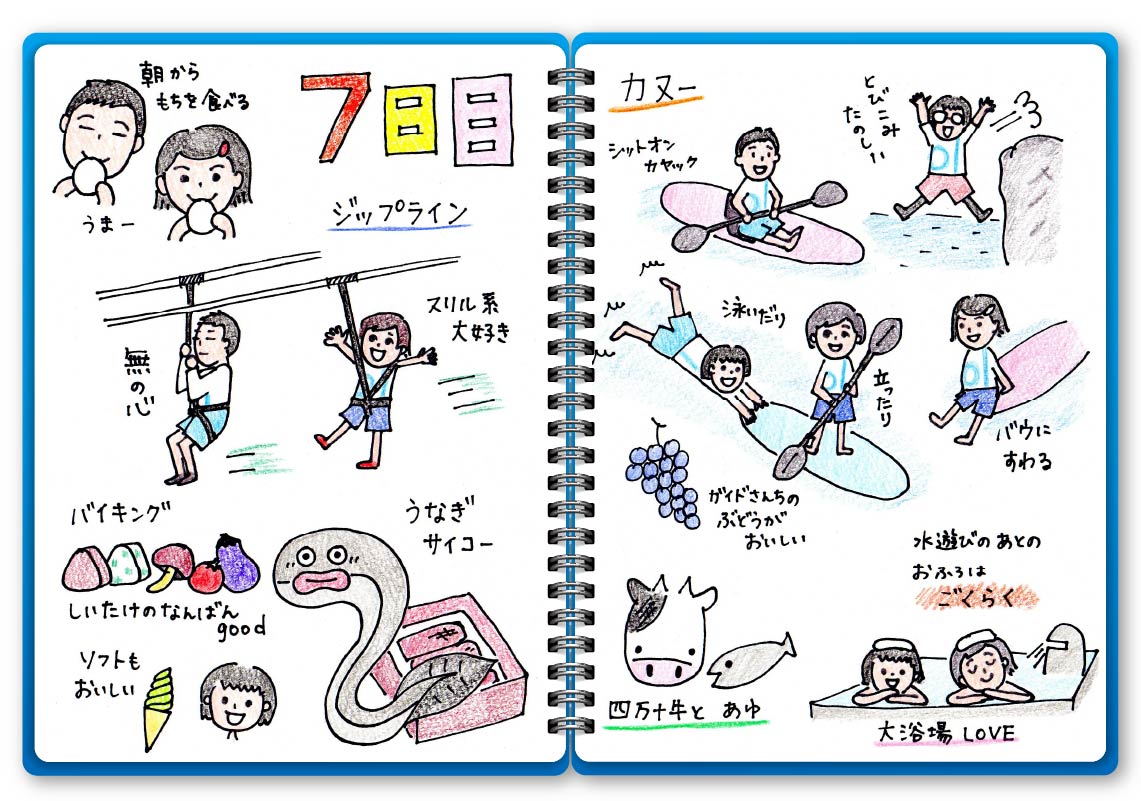 朝から
もちを食べる
うまー
7日目
ジップライン
無の心
スリル系
大好き
バイキング
しいたけのなんばん
good
ソフトも
おいしい
うなぎ
サイコー
カヌー
シットオン
カヤック
とびこみ
たのしい
泳いだり
立ったり
バウに
すわる
ガイドさんちの
ぶどうが
おいしい
水遊びのあとの
おふろは
ごくらく
四万十牛と あゆ
大浴場 LOVE